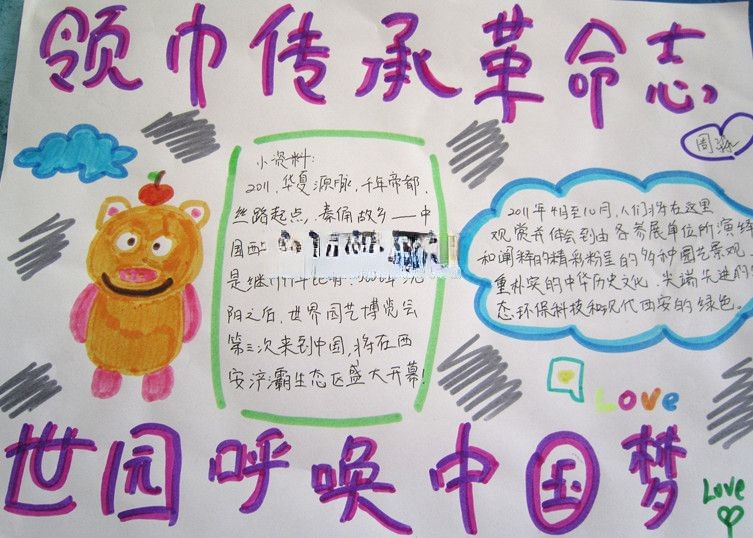 领巾传承革命志
周
小资料:
2011,华夏源脉,千年帝都,
丝路起点,秦俑故乡——中
国西
是继
阳之后,世界园艺博览会
第三次来到中国,将在西
安浐灞生态区盛大开幕!
2011年4月至10月,人们将在这里
观赏并体会到由各参展单位所演绎
和阐释的精彩粉呈的多种园艺景观、
重朴实的中华历史文化、尖端先进的
态环保科技和现代西安的绿色。
LOVE
世园呼唤中国梦
Love